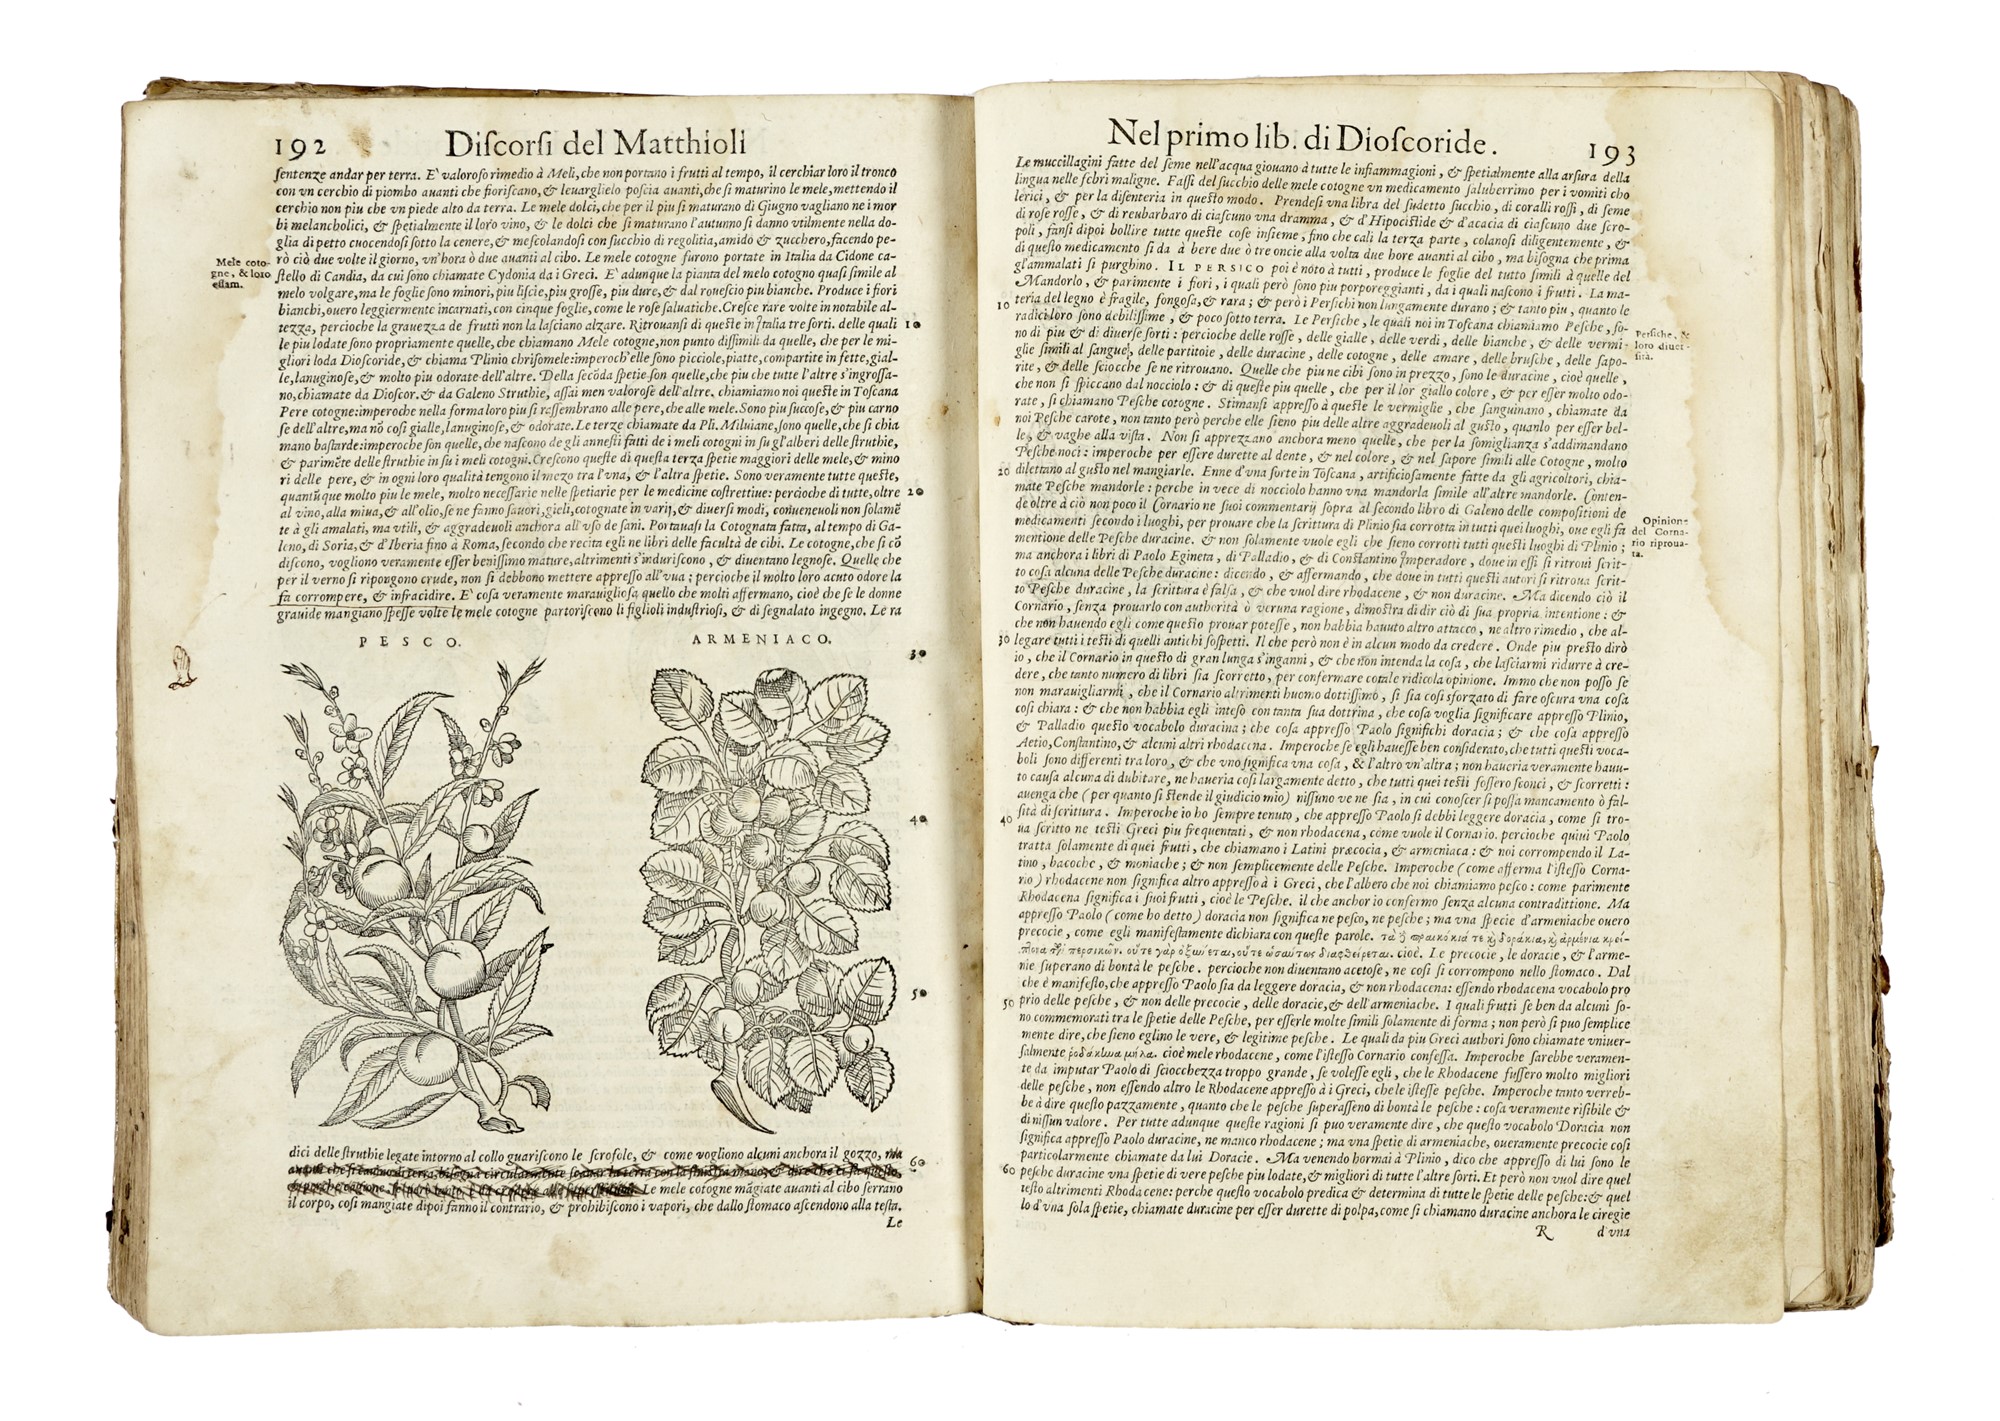 192
Discorsi del Matthioli
sentenze andar per terra. E' valoroso rimedio à Meli, che non portano i frutti al tempo, il cerchiar loro il tronco
con vn cerchio di piombo auanti che fioriscano, & leuarglielo poscia auanti, che si maturino le mele, mettendo il
cerchio non piu che vn piede alto da terra. Le mele dolci, che per il piu si maturano di Giugno vagliano ne i mor
bi melancholici, & spetialmente il loro vino, & le dolci che si maturano l'autunno si danno vtilmente nella do-
glia di petto cuocendosi sotto la cenere, & mescolandosi con succhio di regolitia, amido & zucchero, facendo pe-
rò ciò due volte il giorno, vn'hora ò due auanti al cibo. Le mele cotogne furono portate in Italia da Cidone ca-
Mele coto-
gne, & loro
essam.
stello di Candia, da cui sono chiamate Cydonia da i Greci. E' adunque la pianta del melo cotogno quasi simile al
melo volgare, ma le foglie sono minori, piu liscie, piu grosse, piu dure, & dal rouescio piu bianche. Produce i fiori
bianchi, ouero leggiermente incarnati, con cinque foglie, come le rose saluatiche. Cresce rare volte in notabile al-
tezza, percioche la grauezza de frutti non la lasciano alzare. Ritrouansi di queste in Italia tre sorti. delle quali 10
le piu lodate sono propriamente quelle, che chiamano Mele cotogne, non punto dissimili da quelle, che per le mi-
gliori loda Dioscoride, & chiama Plinio chrisomele: imperoch'elle sono picciole, piatte, compartite in fette, gial-
le, lanuginose, & molto piu odorate dell'altre. Della secōda spetie son quelle, che piu che tutte l'altre s'ingrossa-
no, chiamate da Dioscor. & da Galeno Struthie, assai men valorose dell'altre. chiamiamo noi queste in Toscana
Pere cotogne: imperoche nella forma loro piu si rassembrano alle pere, che alle mele. Sono piu succose, & piu carno
se dell'altre, ma nō cosi gialle, lanuginose, & odorate. Le terze chiamate da Pli. Miluiane, sono quelle, che si chia
mano bastarde: imperoche son quelle, che nascono de gli annesti fatti de i meli cotogni in su gl'alberi delle struthie,
& parimēte delle struthie in su i meli cotogni. Crescono queste di questa terza spetie maggiori delle mele, & mino
ri delle pere, & in ogni loro qualità tengono il mezo tra l'vna, & l'altra spetie. Sono veramente tutte queste,
quantūque molto piu le mele, molto necessarie nelle spetiarie per le medicine costrettiue: percioche di tutte, oltre 20
al vino, alla miua, & all'olio, se ne fanno sauori, gieli, cotognate in varij, & diuersi modi, conueneuoli non solamē
te à gli amalati, ma vtili, & aggradeuoli anchora all'vso de sani. Portauasi la Cotognata fatta, al tempo di Ga-
leno, di Soria, & d'Iberia fino à Roma, secondo che recita egli ne libri delle facultà de cibi. Le cotogne, che si cō
discono, vogliono veramente esser benissimo mature, altrimenti s'induriscono, & diuentano legnose. Quelle che
per il verno si ripongono crude, non si debbono mettere appresso all'vua; percioche il molto loro acuto odore la
fa corrompere, & infracidire. E' cosa veramente marauigliosa quello che molti affermano, cioè che se le donne
grauide mangiano spesse volte le mele cotogne partoriscono li figlioli industriosi, & di segnalato ingegno. Le ra
PESCO.
ARMENIACO.
30
40
50
dici delle struthie legate intorno al collo guariscono le scrofole, & come vogliono alcuni anchora il gozzo, ma
60
Le mele cotogne māgiate auanti al cibo serrano
il corpo, cosi mangiate dipoi fanno il contrario, & prohibiscono i vapori, che dallo stomaco ascendono alla testa.
Le
Nel primo lib. di Dioscoride.
193
Le muccillagini fatte del seme nell'acqua giouano à tutte le infiammagioni, & spetialmente alla arsura della
lingua nelle febri maligne. Fassi del succhio delle mele cotogne vn medicamento saluberrimo per i vomiti cho
lerici, & per la disenteria in questo modo. Prendesi vna libra del sudetto succhio, di coralli rossi, di seme
di rose rosse, & di reubarbaro di ciascuno vna dramma, & d'Hipocistide & d'acacia di ciascuno due scro-
poli, fansi dipoi bollire tutte queste cose insieme, fino che cali la terza parte, colanosi diligentemente, &
di questo medicamento si da à bere due ò tre oncie alla volta due hore auanti al cibo, ma bisogna che prima
gl'ammalati si purghino. IL PERSICO poi è noto à tutti, produce le foglie del tutto simili à quelle del
Mandorlo, & parimente i fiori, i quali però sono piu porporeggianti, da i quali nascono i frutti. La ma-
teria del legno è fragile, fongosa, & rara; & però i Persichi non lungamente durano; & tanto piu, quanto le
10 radici loro sono debilissime, & poco sotto terra. Le Persiche, le quali noi in Toscana chiamiamo Pesche, so-
Persiche, &
loro diuer-
sità.
no di piu & di diuerse sorti: percioche delle rosse, delle gialle, delle verdi, delle bianche, & delle vermi-
glie simili al sangue, delle partitoie, delle duracine, delle cotogne, delle amare, delle brusche, delle sapo-
rite, & delle sciocche se ne ritrouano. Quelle che piu ne cibi sono in prezzo, sono le duracine, cioè quelle,
che non si spiccano dal nocciolo: & di queste piu quelle, che per il lor giallo colore, & per esser molto odo-
rate, si chiamano Pesche cotogne. Stimansi appresso à queste le vermiglie, che sanguinano, chiamate da
noi Pesche carote, non tanto però perche elle sieno piu delle altre aggradeuoli al gusto, quanto per esser bel-
le, & vaghe alla vista. Non si apprezzano anchora meno quelle, che per la somiglianza s'addimandano
Pesche noci: imperoche per essere durette al dente, & nel colore, & nel sapore simili alle Cotogne, molto
20 dilettano al gusto nel mangiarle. Enne d'vna sorte in Toscana, artificiosamente fatte da gli agricoltori, chia-
mate Pesche mandorle: perche in vece di nocciolo hanno vna mandorla simile all'altre mandorle. Conten-
de oltre à ciò non poco il Cornario ne suoi commentarij sopra al secondo libro di Galeno delle compositioni de
medicamenti secondo i luoghi, per prouare che la scrittura di Plinio sia corrotta in tutti quei luoghi, oue egli fa
Opinione
del Corna-
rio riproua-
ta.
mentione delle Pesche duracine. & non solamente vuole egli che sieno corrotti tutti questi luoghi di Plinio;
ma anchora i libri di Paolo Egineta, di Palladio, & di Constantino Imperadore, doue in essi si ritroui scrit-
to cosa alcuna delle Pesche duracine: dicendo, & affermando, che doue in tutti questi autori si ritroua scrit-
to Pesche duracine, la scrittura è falsa, & che vuol dire rhodacene, & non duracine. Ma dicendo ciò il
Cornario, senza prouarlo con authorità ò veruna ragione, dimostra di dir ciò di sua propria intentione: &
che non hauendo egli come questo prouar potesse, non habbia hauuto altro attacco, ne altro rimedio, che al-
30 legare tutti i testi di quelli antichi sospetti. Il che però non è in alcun modo da credere. Onde piu presto dirò
io, che il Cornario in questo di gran lunga s'inganni, & che non intenda la cosa, che lasciarmi ridurre à cre-
dere, che tanto numero di libri sia scorretto, per confermare cotale ridicola opinione. Immo che non posso se
non marauigliarmi, che il Cornario altrimenti huomo dottissimo, si sia cosi sforzato di fare oscura vna cosa
cosi chiara: & che non habbia egli inteso con tanta sua dottrina, che cosa voglia significare appresso Plinio,
& Palladio questo vocabolo duracina; che cosa appresso Paolo significhi doracia; & che cosa appresso
Aetio, Constantino, & alcuni altri rhodacena. Imperoche se egli hauesse ben considerato, che tutti questi voca-
boli sono differenti tra loro, & che vno significa vna cosa, & l'altro vn'altra; non haueria veramente hauu-
to causa alcuna di dubitare, ne haueria cosi largamente detto, che tutti quei testi fossero sconci, & scorretti:
auenga che (per quanto si stende il giudicio mio) nissuno ve ne sia, in cui conoscer si possa mancamento ò fal-
40 sità di scrittura. Imperoche io ho sempre tenuto, che appresso Paolo si debbi leggere doracia, come si tro-
ua scritto ne testi Greci piu frequentati, & non rhodacena, come vuole il Cornario. percioche quiui Paolo
tratta solamente di quei frutti, che chiamano i Latini præcocia, & armeniaca: & noi corrompendo il La-
tino, bacoche, & moniache; & non semplicemente delle Pesche. Imperoche (come afferma l'istesso Corna-
rio) rhodacene non significa altro appresso à i Greci, che l'albero che noi chiamiamo pesco: come parimente
Rhodacena significa i suoi frutti, cioè le Pesche. il che anchor io confermo senza alcuna contradittione. Ma
appresso Paolo (come ho detto) doracia non significa ne pesco, ne pesche; ma vna specie d'armeniache ouero
precocie, come egli manifestamente dichiara con queste parole. τὰ ἢ πραικόκια τε κỳ δοράκια, κỳ ἀρμένια κρεί-
περσικῶν. οὔτε γὰρ ὀξύνεται, οὔτε ὡσαύτως διαφθείρεται. cioè. Le precocie, le doracie, & l'arme-
nie superano di bontà le pesche. percioche non diuentano acetose, ne cosi si corrompono nello stomaco. Dal
che è manifesto, che appresso Paolo sia da leggere doracia, & non rhodacena: essendo rhodacena vocabolo pro
50 prio delle pesche, & non delle precocie, delle doracie, & dell'armeniache. I quali frutti se ben da alcuni so-
no commemorati tra le spetie delle Pesche, per esserle molte simili solamente di forma; non però si puo semplice
mente dire, che sieno eglino le vere, & legitime pesche. Le quali da piu Greci authori sono chiamate vniuer-
salmente ῥοδάκινα μῆλα. cioè mele rhodacene, come l'istesso Cornario confessa. Imperoche sarebbe veramen-
te da imputar Paolo di sciocchezza troppo grande, se volesse egli, che le Rhodacene fussero molto migliori
delle pesche, non essendo altro le Rhodacene appresso à i Greci, che le istesse pesche. Imperoche tanto verreb-
be à dire questo pazzamente, quanto che le pesche superasseno di bontà le pesche: cosa veramente risibile &
di nissun valore. Per tutte adunque queste ragioni si puo veramente dire, che questo vocabolo Doracia non
significa appresso Paolo duracine, ne manco rhodacene; ma vna spetie di armeniache, oueramente precocie cosi
particolarmente chiamate da lui Doracie. Ma venendo hormai à Plinio, dico che appresso di lui sono le
60 pesche duracine vna spetie di vere pesche piu lodate, & migliori di tutte l'altre sorti. Et però non vuol dire quel
testo altrimenti Rhodacene: perche questo vocabolo predica & determina di tutte le spetie delle pesche: & quel
lo d'vna sola spetie, chiamate duracine per esser durette di polpa, come si chiamano duracine anchora le ciregie
R d'vna